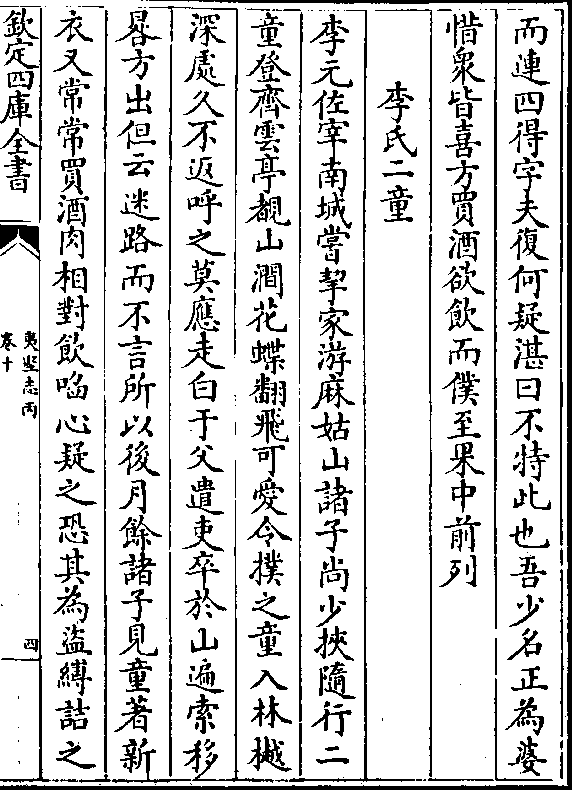 而連四得字夫復何疑湛曰不特此也吾少名正為婆
惜衆皆喜方買酒欲飲而僕至果中前列
李氏二童
李元佐宰南城嘗挈家游麻姑山諸子尚少挾隨行二
童登齊雲亭覩山澗花蝶翻飛可愛令撲之童入林樾
深處久不返呼之莫應走白于父遣吏卒於山遍索移
晷方出但云迷路而不言所以後月餘諸子見童著新
衣又常常買酒肉相對飲啗心疑之恐其為盜縛詰之
欽定四庫全書
夷堅志丙
卷十
四